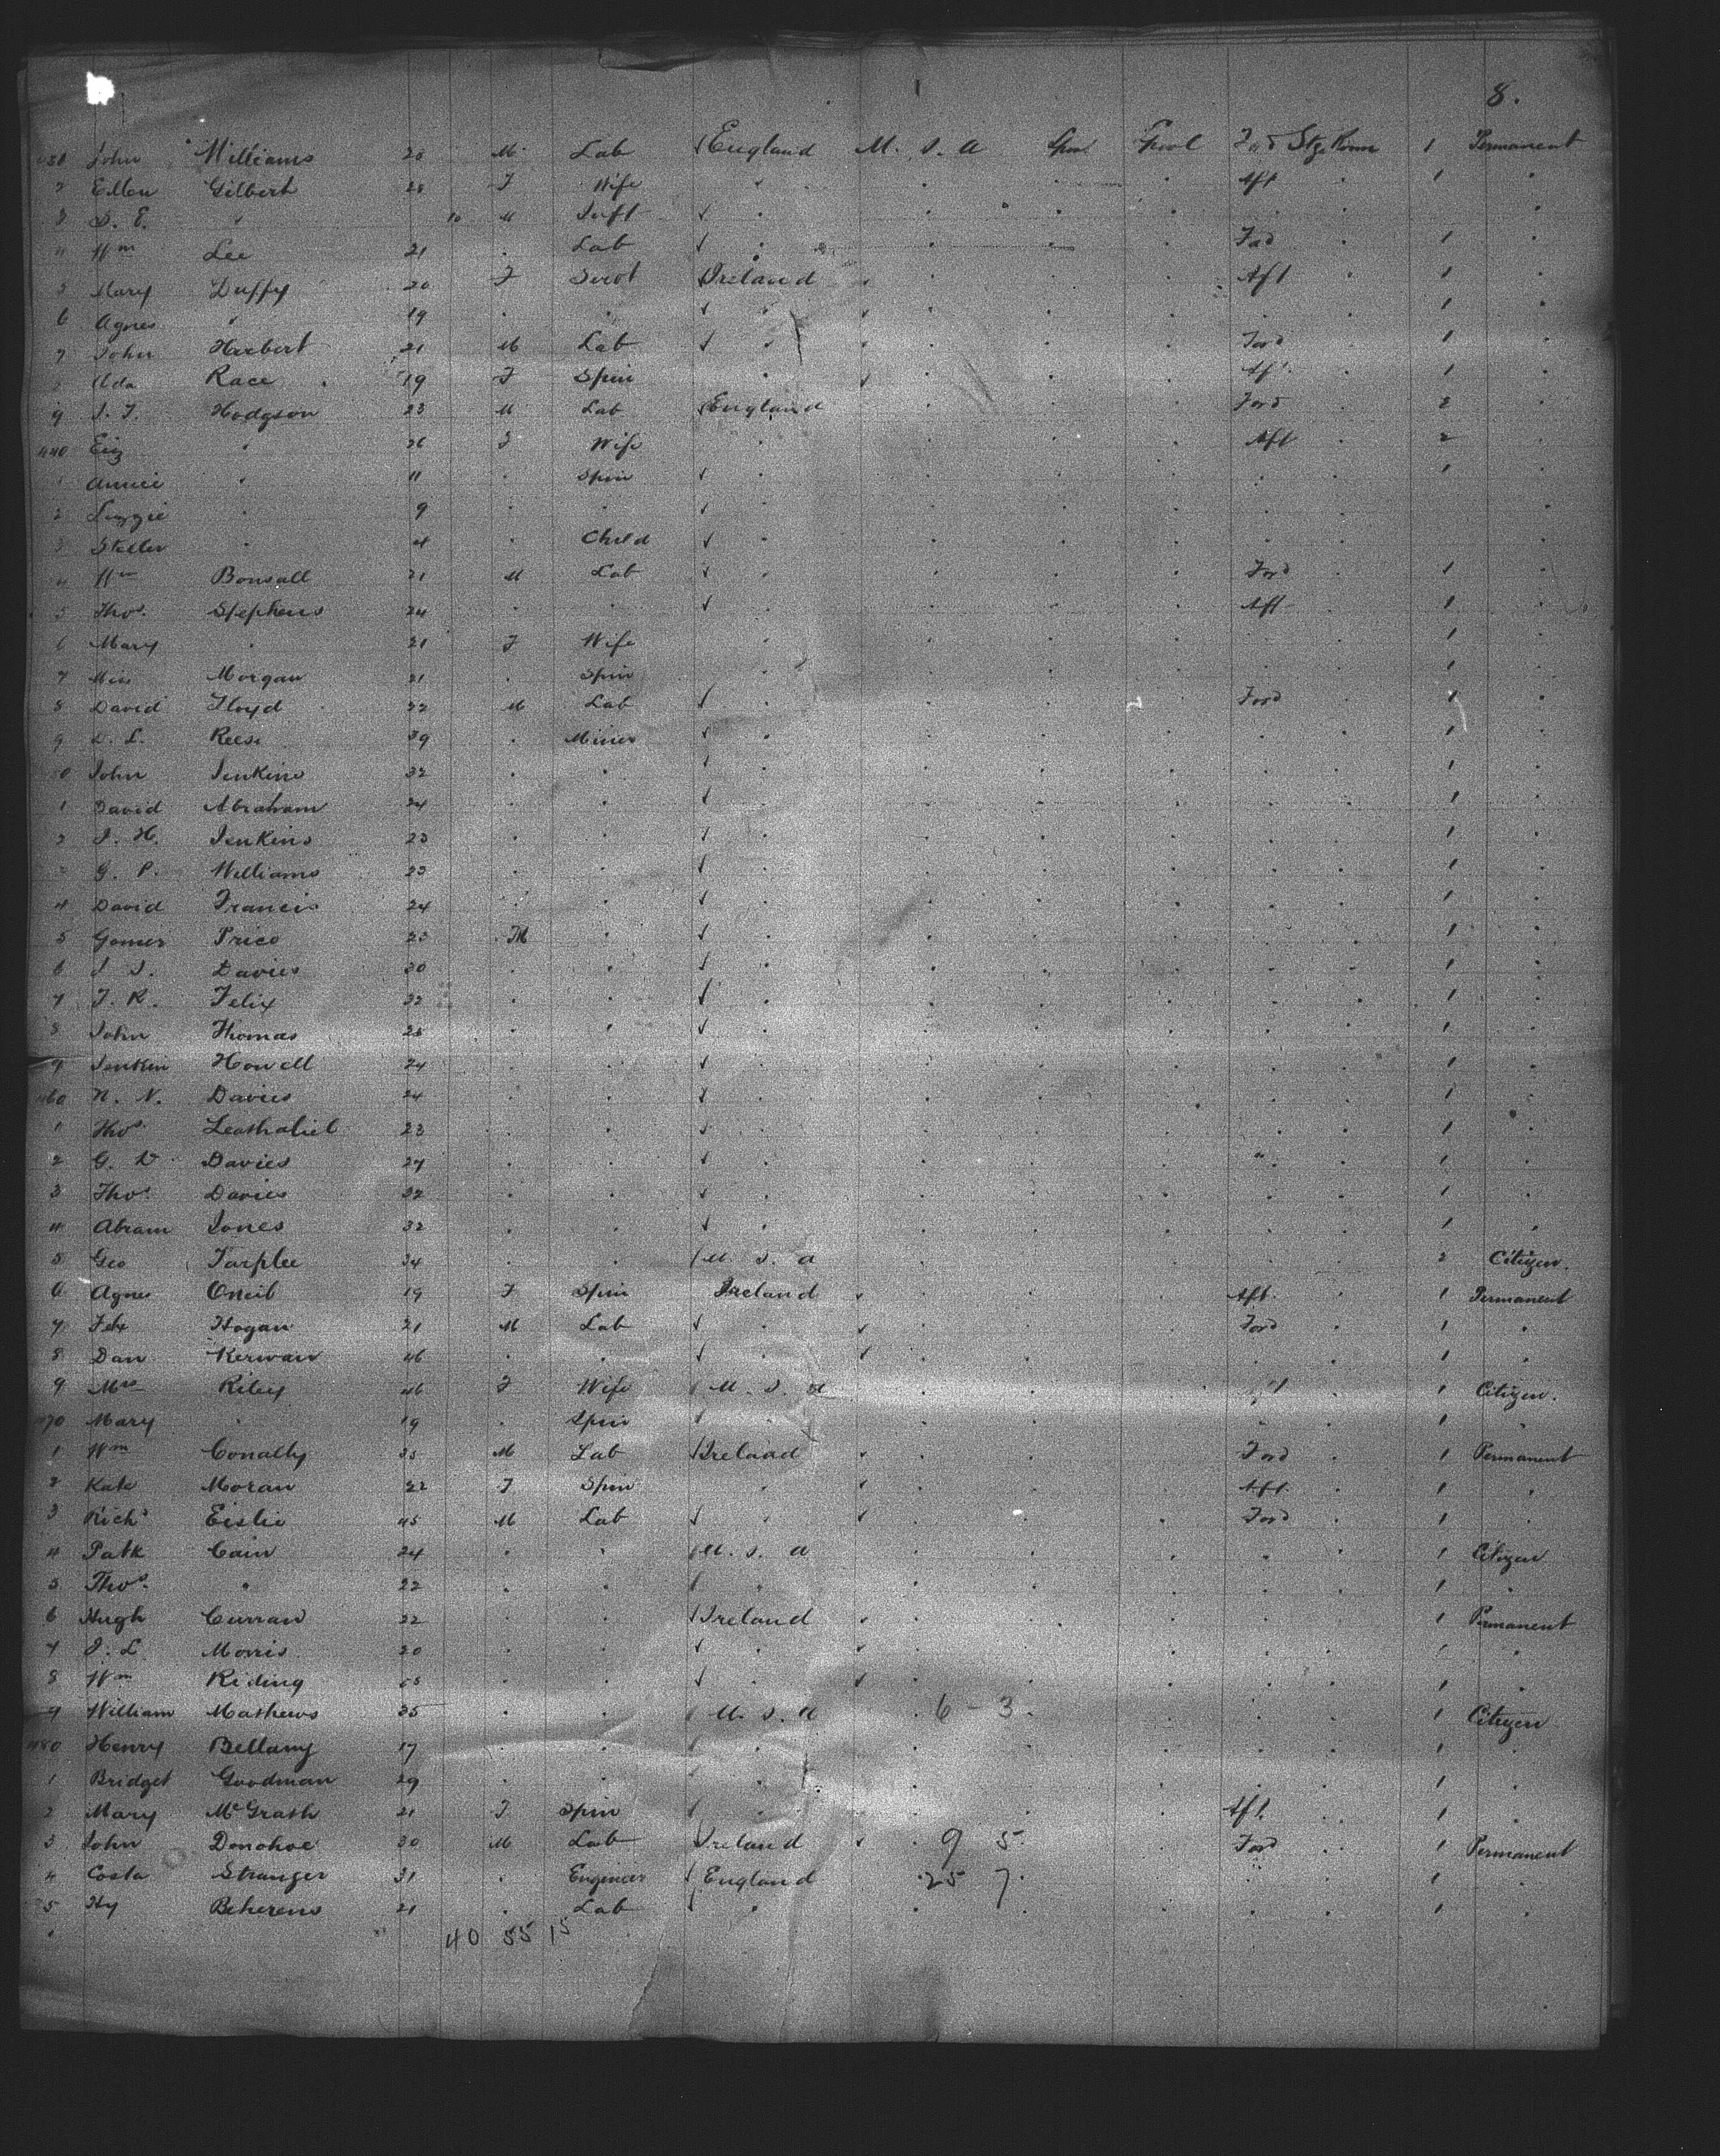 8.
John Williams 28 M Lab England U. S. A Lpool Lpool Ford Stge Room 1 Permanent
2 Ellen Gilbert 28 F Wife " " " " Aft " 1 "
3 " 10 M Inft " " " " " "
4 Wm Lee 21 " Lab " " " " Ford " 1
5 Mary Duffy 20 F Servt Ireland " " " Aft " 1 "
6 Agnes " 19 " " " " " " " " 1 "
7 John Herbert 21 M Lab " " " " Ford " 1 "
Ada Race 19 F Spin " " " " Aft " 1 "
9 J. T. Hodgson 23 M Lab England " " " Ford " 2 "
440 Eliz " 26 F Wife " " " " Aft " 2 "
1 Annie " 11 " Spin " " " " " " 1 "
2 Lizzie " 9 " " " " " " " " "
3 " 4 " Child " " " " " " "
4 Wm Bonsall 21 M Lab " " " " Ford " 1 "
5 Thos. Stephens 24 " " " " " " Aft " 1 "
6 Mary " 21 F Wife " " " " " " 1 "
7 Miss Morgan 21 " Spin " " " " " " 1 "
8 David Floyd 22 M Lab " " " " Ford " 1 "
9 D. L. Reese 39 " Miner " " " " " " 1 "
50 John Jenkins 32 " " " " " " " " 1 "
1 David Abraham 24 " " " " " " " " 1 "
2 J. H. Jenkins 23 " " " " " " " " 1 "
G. P. Williams 23 " " " " " " " " 1 "
4 David Francis 24 " " " " " " " " 1 "
5 Gomer Price 23 M " " " " " " " 1 "
6 Davies 30 " " " " " " " " 1 "
7 T. R. Felix 32 " " " " " " " " 1 "
8 John Thomas 25 " " " " " " " " 1 "
9 Jenkin Howell 24 " " " " " " " " 1 "
460 N. N. Davies 24 " " " " " " " " 1 "
1 Thos. 23 " " " " " " " " 1 "
2 G. Davies 24 " " " " " " " " 1 "
3 Thos. Davies 32 " " " " " " " " 1 "
4 Abram Jones 32 " " " " " " " " 1 "
5 Geo Tarplee 34 " " U. S. A " " " " " 2 Citizen.
6 Agnes Oneil 19 F Spin Ireland " " " Aft. " 1 Permanent
7 Hogan 21 M Lab " " " " Ford " 1 "
8 Dan Kerwan 46 " " " " " " " " 1 "
9 Mrs Riley 46 F Wife U. S. A " " " " 1 Citizen.
470 Mary " 19 " Spin " " " " " " 1 "
1 Wm Conally 35 M Lab Ireland " " " Ford " 1 Permanent
2 Kate Moran 22 F Spin " " " " Aft. " 1 "
3 Richd 45 M Lab " " " " Ford " 1 "
4 Patk Cain 24 " " U. S. A " " " " " 1 Citizen
5 Thos. " 22 " " " " " " " " 1 "
6 Hugh Curran 22 " " Ireland " " " " " 1 Permanent
7 J. L. Morris 20 " " " " " " " " 1 "
8 Wm Riding " " " " " " " " 1 "
9 William Mathews 35 " " U. S. A " 6 - 3 " " " " 1 Citizen
480 Henry Bellamy 17 " " " " " " " " 1 "
1 Bridget Goodman 29 " " " " " " " " 1 "
2 Mary McGrath 21 F Spin " " " " Aft. " 1 "
3 John Donohoe 30 M Lab Ireland " 9 5 " " Ford " 1 Permanent
4 Costa Stranger 31 " Engineer England " 25 7 " " " " 1 "
5 Hy Beherens 21 " Lab " " " " " " 1 "
40 55 15